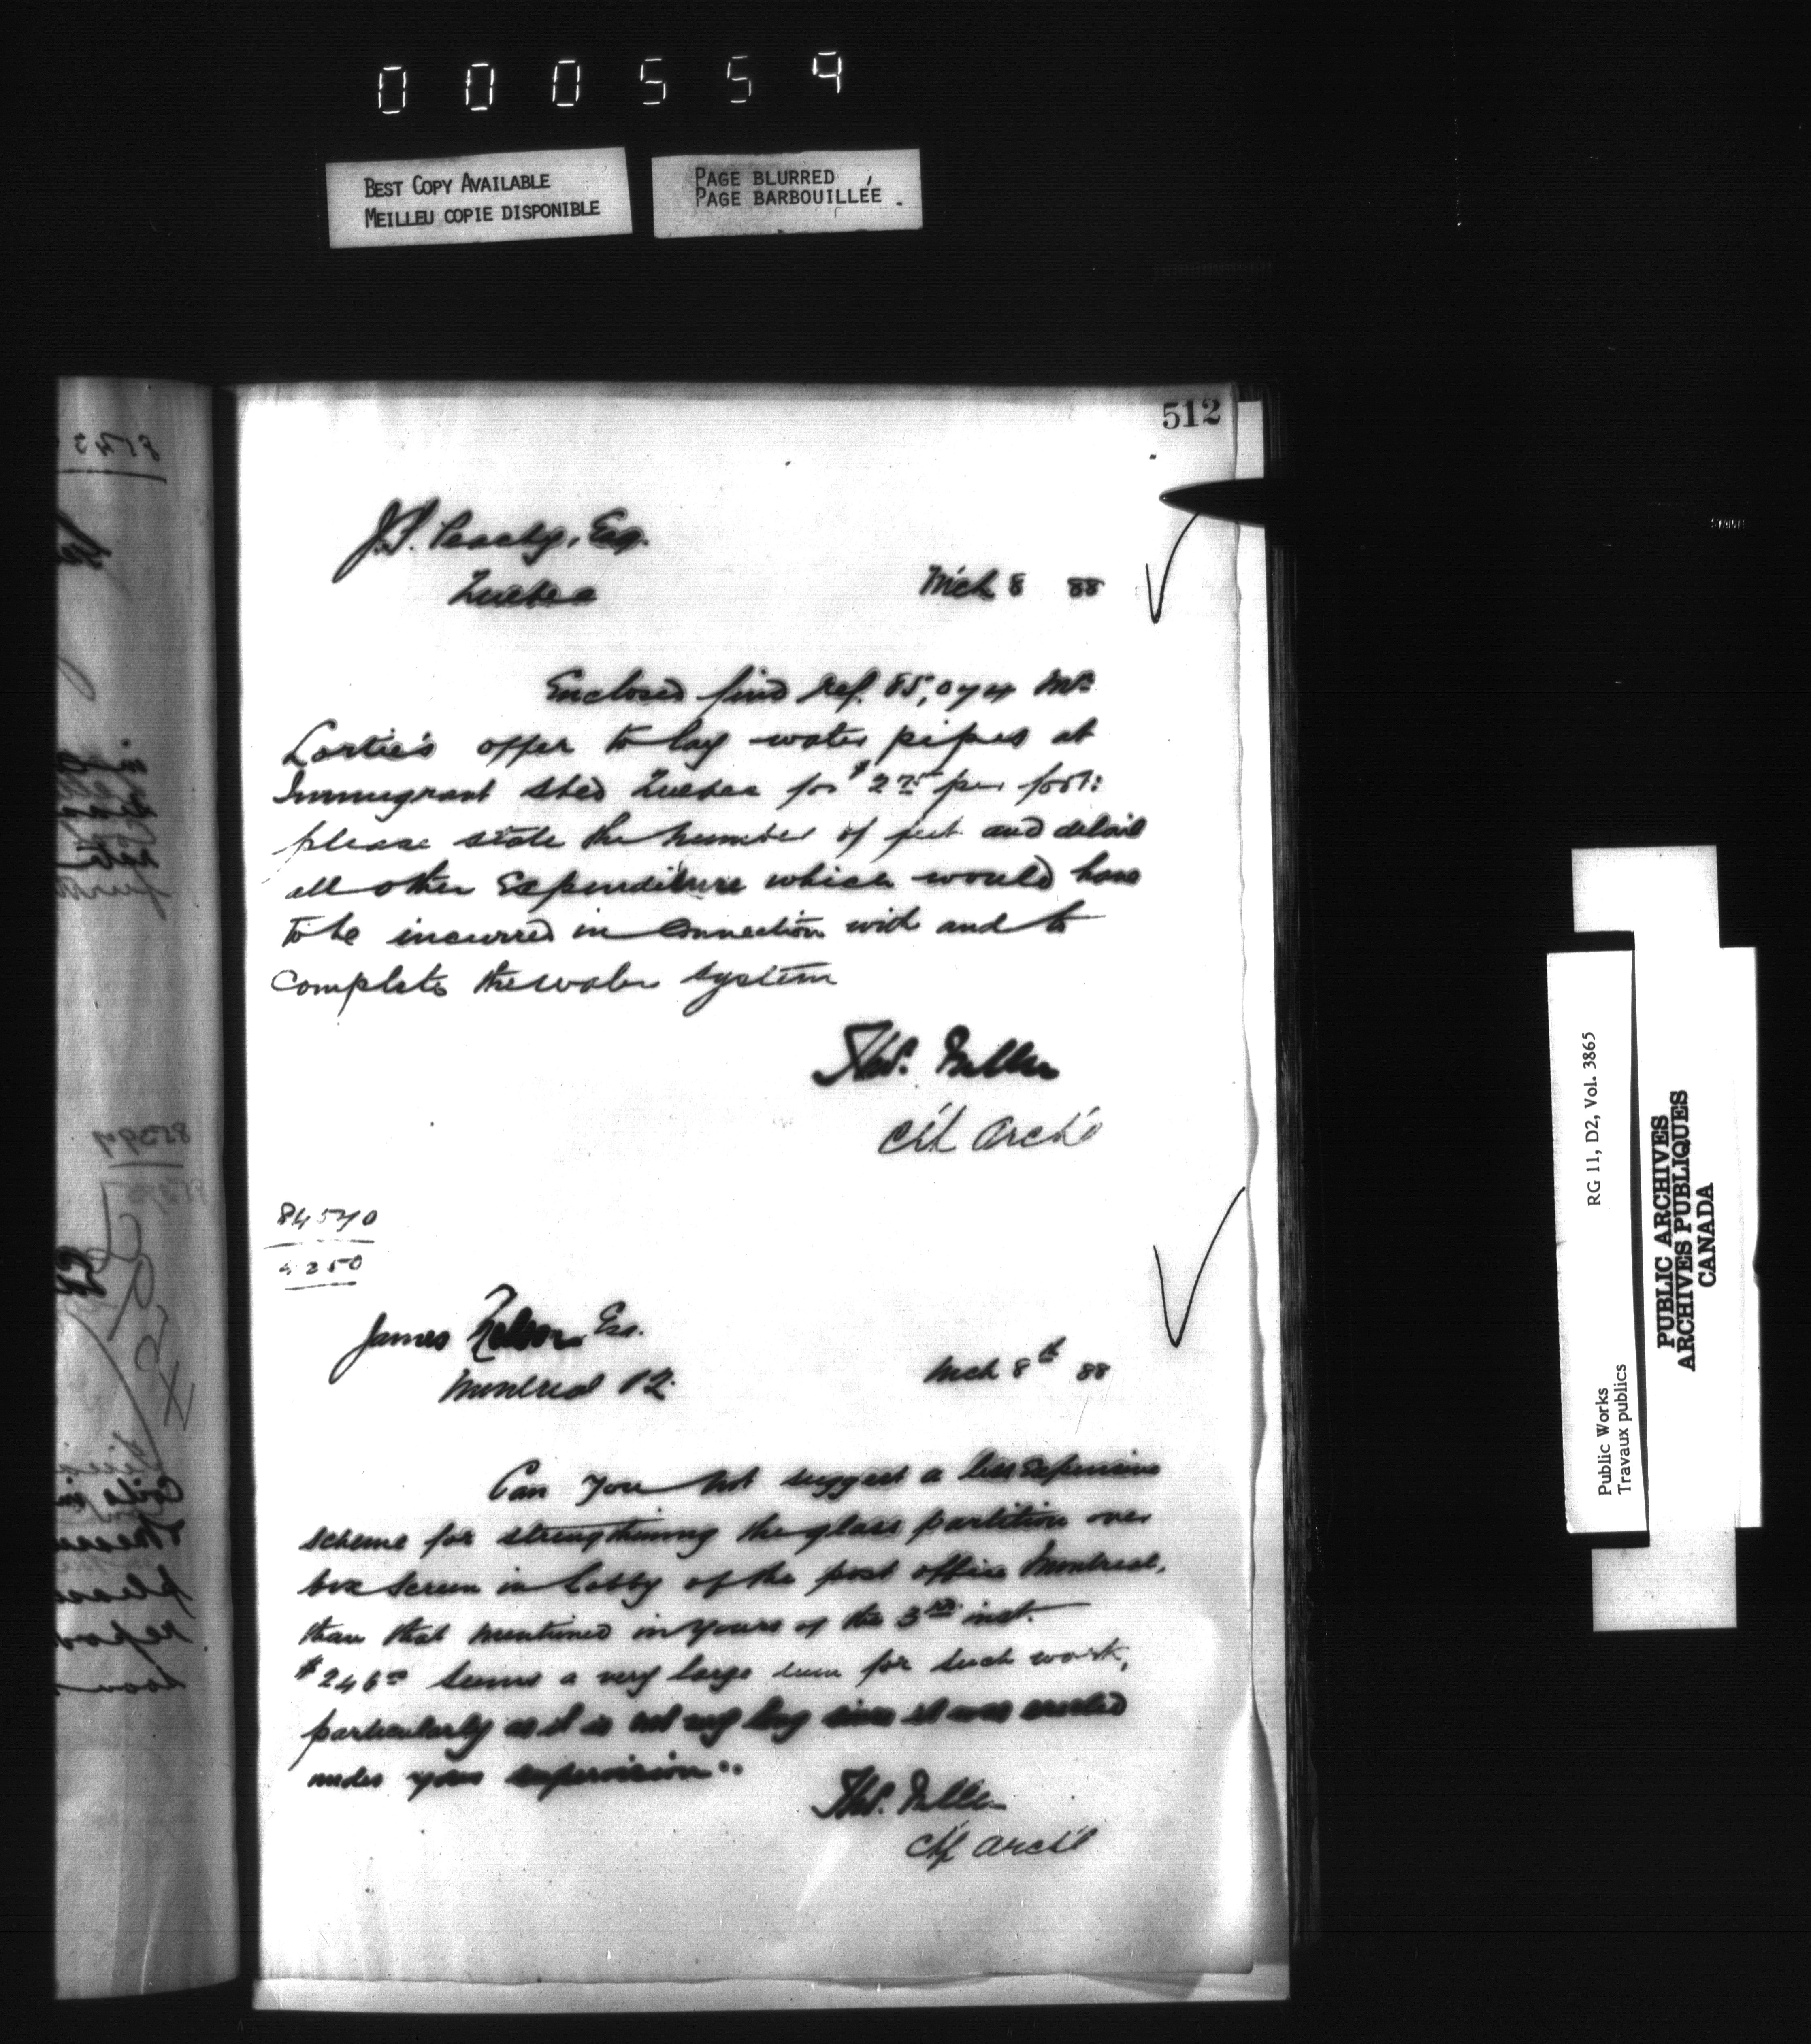 000559
BEST COPY AVAILABLE
MEILLEU COPIE DISPONIBLE
PAGE BLURRED
PAGE BARBOUILLÉE
512
J.F. Peachy, Esq.
Quebec
Mch 8 88
Enclosed find Ref. 85,074 Mr
Lortie's offer to lay water pipes at
Immigrant shed Quebec for $2.75 per foot:
please state the number of feet and detail
all other Expenditure which would have
to be incurred in connection with and to
complete the water system
Thos. Fuller
Ch Archt
84570
4250
James Nelson Esq.
Montreal P.Q.
Mch 8th 88
Can you not suggest a less expensive
scheme for strengthening the glass partition over
box screen in Lobby of the post office Montreal,
than that mentioned in yours of the 3rd inst.
$246.00 seems a very large sum for such work,
particularly as it is not very long since it was erected
under your supervision.
Thos. Fuller
Ch Archt
RG 11, D2, Vol. 3865
Public Works
Travaux publics
PUBLIC ARCHIVES
ARCHIVES PUBLIQUES
CANADA